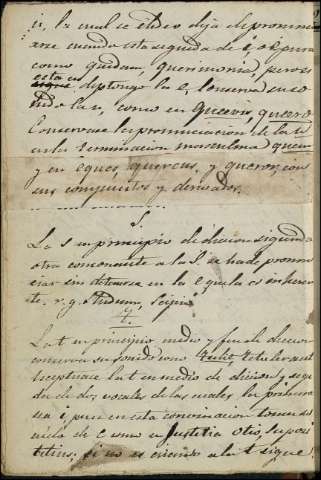 u, la cual se debe dejar de pronunci
arse cuando esta seguida de i, o e, pura
como quidam, querimonia, pero si
esta es
diptongo la e, conserva su so
nido la u, como en Quaevis, quaero
Conservase la pronunciacion de la u
en la terminacion masculina quem
y en eques, quercus, y queror, con
sus compuestos y derivados.
S.
La S en principio de diccion siguiendo
otra consonante a la S. se ha de pronun
ciar sin detenerse en la e que la es inheren
te. v.g. studium, Scipio
T.
La t en principio medio y fin de diccion
conserva su sonido como
esceptuase la t en medio de diccion, segui
da de dos vocales de las cuales la primera
sea i, pues en esta convinacion toma so
nido de C como en Justitia Otio,
si no es cuando a la t sigue